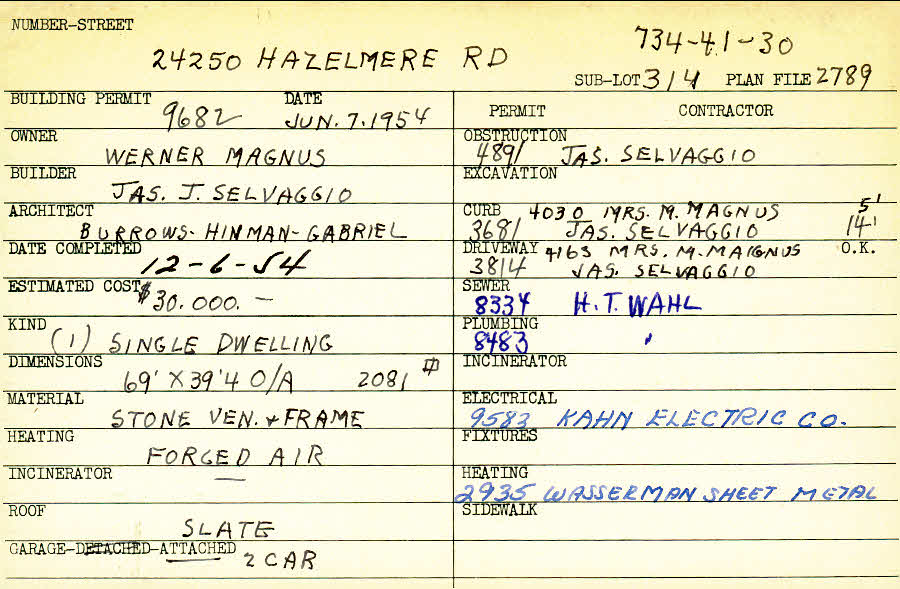 NUMBER-STREET
24250 HAZELMERE RD
734-41-30
SUB-LOT 314 PLAN FILE 2789
BUILDING PERMIT DATE
9682 JUN. 7. 1954
OWNER
WERNER MAGNUS
BUILDER
JAS. J. SELVAGGIO
ARCHITECT
BURROWS-HINMAN-GABRIEL
DATE COMPLETED
12-6-54
ESTIMATED COST $30.000.—
KIND
(1) SINGLE DWELLING
DIMENSIONS
69' X 39'4 O/A 2081
MATERIAL
STONE VEN. + FRAME
HEATING
FORGED AIR
INCINERATOR
—
ROOF
SLATE
GARAGE-DETACHED-ATTACHED
2 CAR
PERMIT CONTRACTOR
OBSTRUCTION
4891 JAS. SELVAGGIO
EXCAVATION
CURB 4030 MRS. M. MAGNUS 5'
3681 JAS. SELVAGGIO 14'
DRIVEWAY 4163 MRS. M. MAIGNUS O.K.
3814 JAS. SELVAGGIO
SEWER
8334 H.T. WAHL
PLUMBING
8483 "
INCINERATOR
ELECTRICAL
9583 KAHN ELECTRIC CO.
FIXTURES
HEATING
2935 WASSERMAN SHEET METAL
SIDEWALK